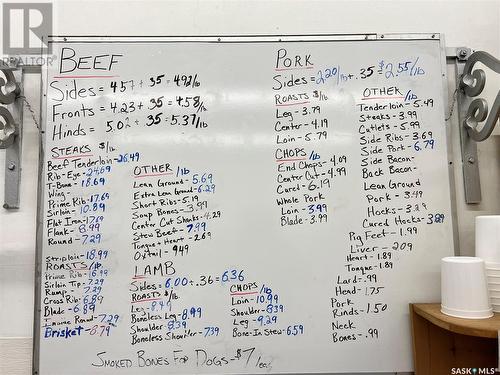 REALTOR®
BEEF
Sides - 4.57 + .35 = 4.92/lb
Fronts = 4.23 + .35 = 4.58/lb
Hinds = 5.02 + .35 = 5.37/lb
STEAKS $/lb
Beef Tenderloin - 26.49
Rib-Eye - 24.69
T-Bone - 18.69
Wing -
Prime Rib - 17.69
Sirloin - 10.89
Flat Iron - 17.69
Flank - 8.99
Round - 7.29
Striploin - 18.99
ROASTS $/lb
Prime Rib - 16.99
Sirloin Tip - 7.29
Rump - 7.29
Cross Rib - 6.89
Blade - 6.89
Round - 7.29
Brisket - 8.79
OTHER /lb
Lean Ground - 5.69
Extra Lean Ground - 6.29
Short Ribs - 5.19
Soup Bones - 3.89
Center Cut Shanks - 4.29
Stew Beef - 7.99
Tongue + Heart - 2.69
Oxtail - 9.49
LAMB
Sides - 6.00 + .36 = 6.36
ROASTS $/lb
Leg - 8.49
Boneless Leg - 8.99
Shoulder - 8.39
Boneless Shoulder - 7.39
CHOPS /lb
Loin - 10.99
Shoulder - 8.39
Leg - 9.29
Bone-In Stew - 6.59
SMOKED BONES FOR DOGS - $7/ea
PORK
Sides - 2.20/lb + .35 = $2.55/lb
ROASTS $/lb
Leg - 3.79
Center - 4.19
Loin - 5.79
CHOPS /lb
End Chops - 4.09
Center Cut - 4.99
Cured - 6.19
Whole Pork
Loin - 3.99
Blade - 3.99
OTHER /lb
Tenderloin - 5.49
Steaks - 3.99
Cutlets - 5.99
Side Ribs - 3.69
Side Pork - 6.79
Side Bacon -
Back Bacon -
Lean Ground
Pork - 3.49
Hocks - 3.29
Cured Hocks - 3.89
Pig Feet - 1.99
Liver - 2.09
Heart - 1.89
Tongue - 1.89
Lard - .99
Head - 1.75
Pork
Rinds - 1.50
Neck
Bones - .99
SASK MLS®